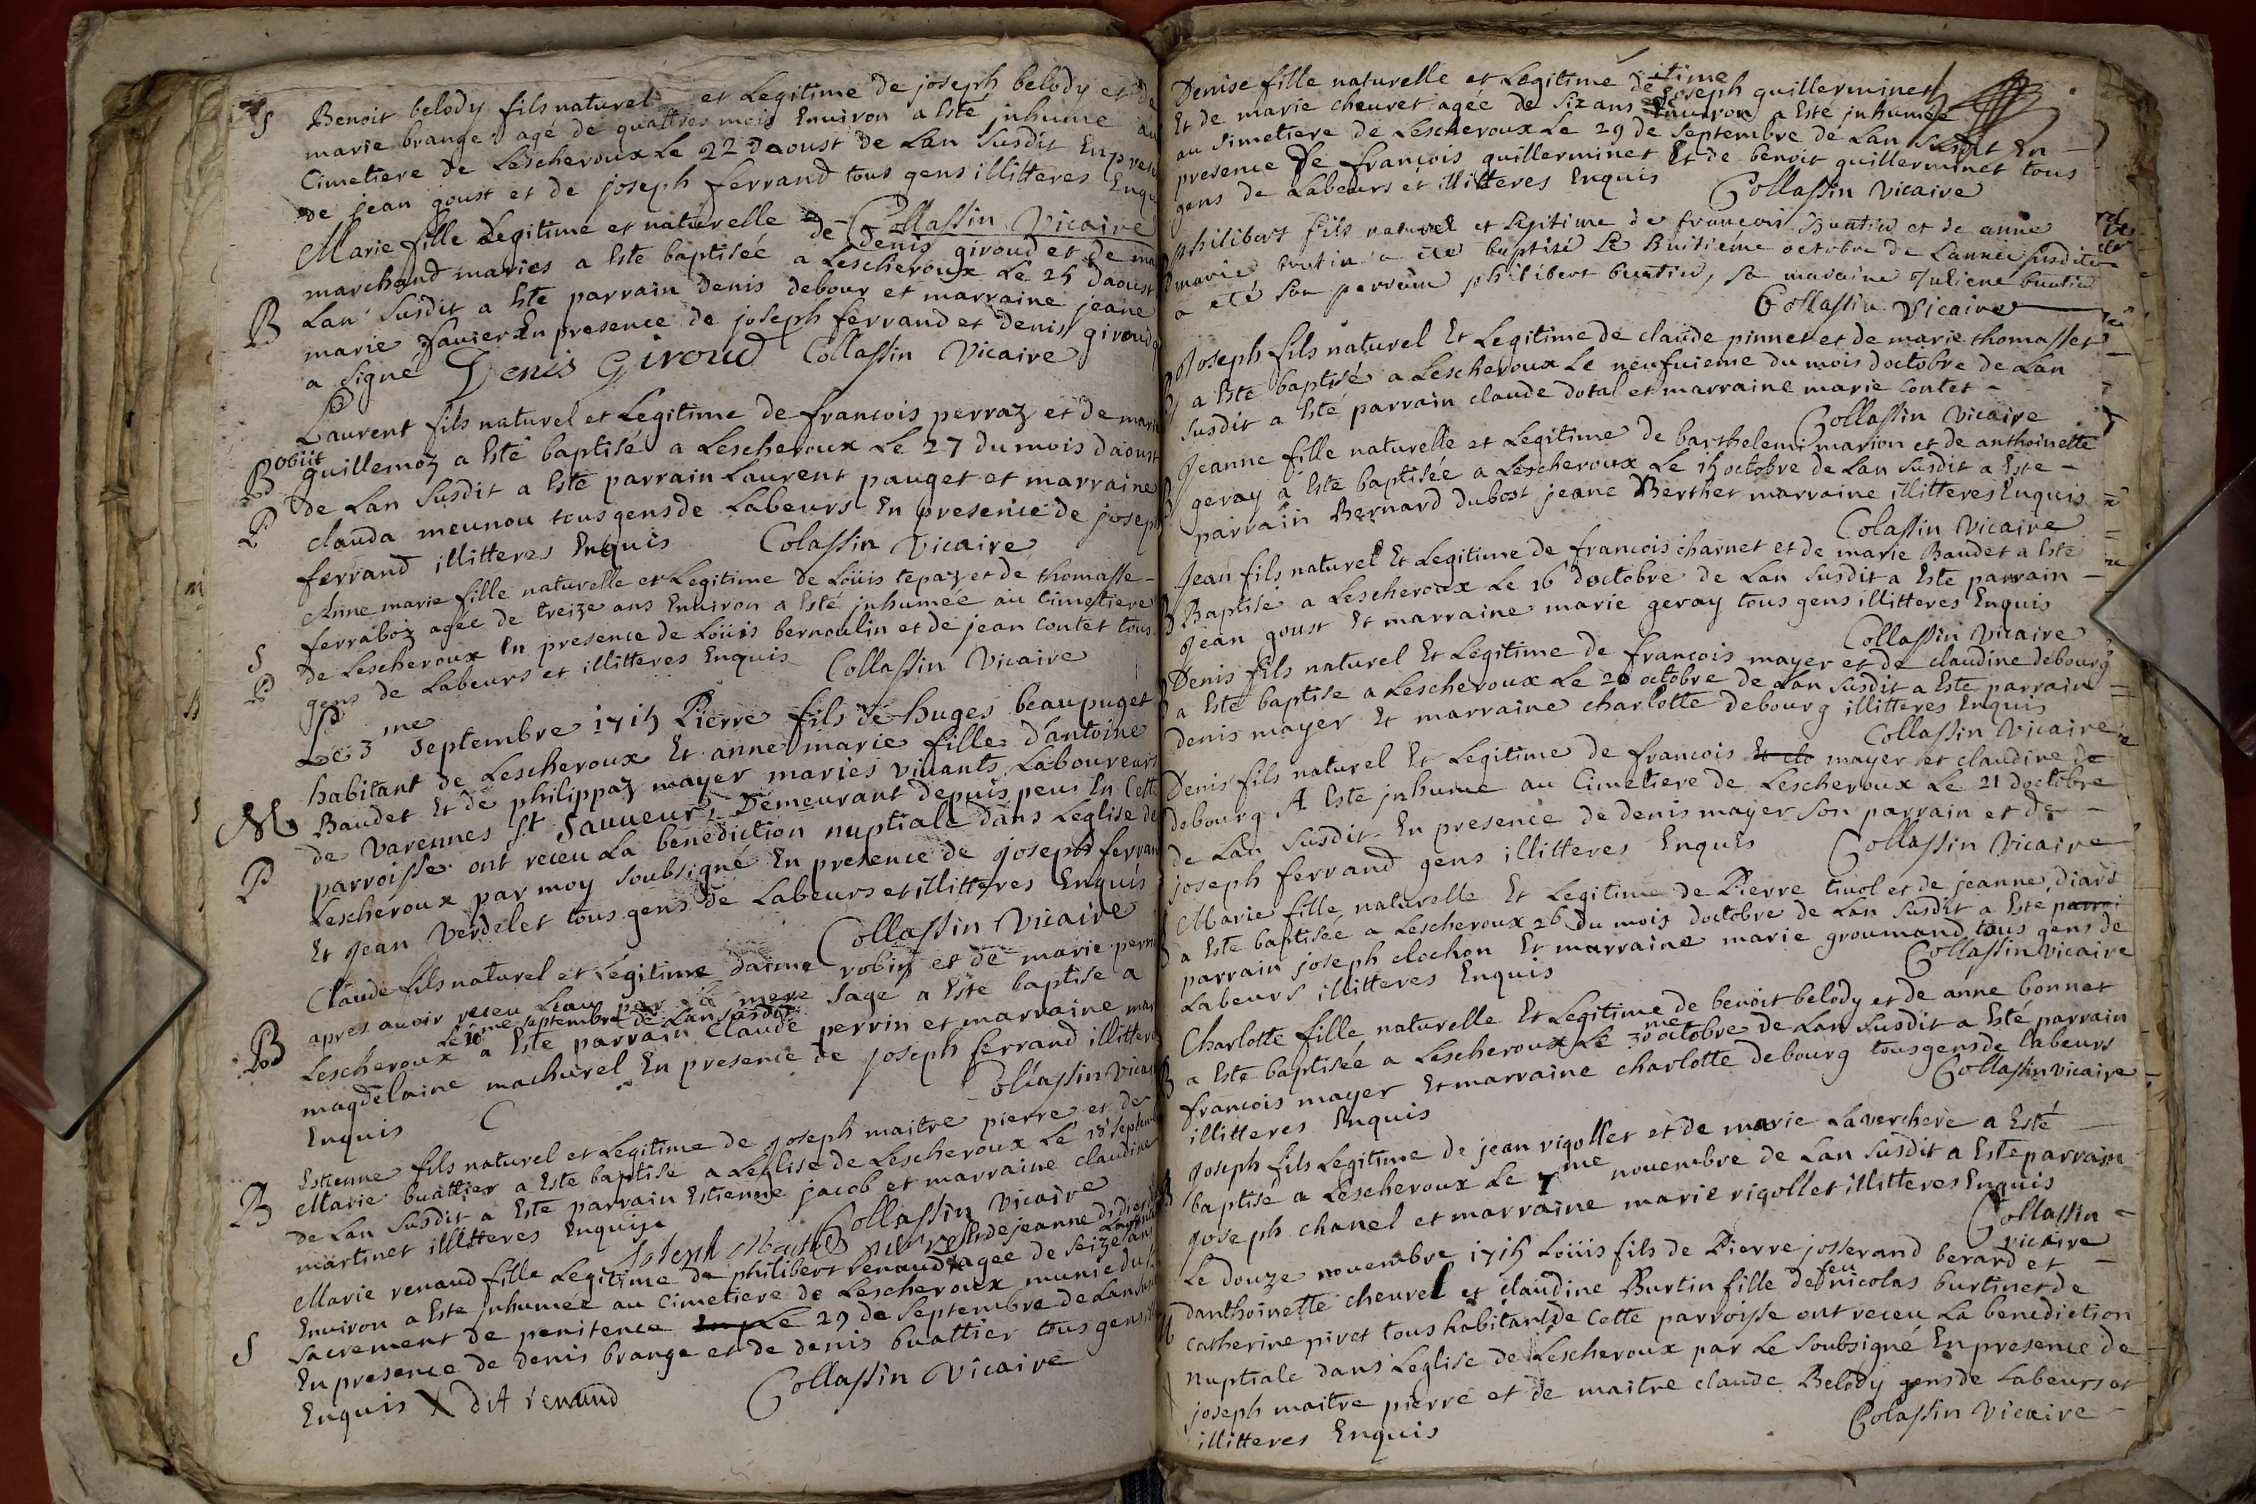 S Benoit belody fils naturel et Legitime de joseph belody et de
marie brange agé de quattres mois Environ a Esté jnhumé au
Cimetiere de Lescheroux Le 22 Daoust de Lan Susdit En prese
de jean goust et de joseph ferrand tous gens illitteres Enqu
Collassin Vicaire
Marie fille Legitime et naturelle de denis giroud et de ma
marchand maries a Esté baptisée a Lescheroux Le 25 daoust
B Lan Susdit a Esté parrain Denis debour et marraine jeane
marie Janier En presence de joseph ferrand et denis giroud q
a Signé Denis Giroud Collassin Vicaire
Laurent fils naturel et Legitime de francois perraz et de marie
B obiit guillemoz a Esté baptisé a Lescheroux Le 27 du mois daoust
P de Lan Susdit a Esté parrain Laurent pauget et marraine
clauda meunou tous gens de Labeurs En presence de joseph
ferrand illitteres Enquis Colassin Vicaire
Anne marie fille naturelle et Legitime de Loüis tepaz et de thomasse
ferraboz agée de treize ans Environ a Esté jnhumée au Cimetiere
S de Lescheroux En presence de Loüis bernoulin et de jean contet tous
P gens de Labeurs et illitteres Enquis Collassin Vicaire
Le 3me Septembre 1715 Pierre fils de huges beaupuget
habitant de Lescheroux Et anne marie fille d'antoine
M Baudet Et de philippaz mayer maries vivants Laboureurs
de Varennes St Sauveur Demeurant depuis peu En Cette
P parroisse ont receu La benediction nuptiale dans Leglise de
Lescheroux par moy Soubsigné En presence de joseph ferran
Et jean Verdelet tous gens de Labeurs et illitteres Enquis
Collassin Vicaire
Claude fils naturel et Legitime daime robin et de marie perri
apres avoir receu Leau par la mere Sage a Esté baptisé a
B Lescheroux Le 10me Septembre de Lan Susdit a Esté parrain Claude perrin et marraine mar
magdelaine machurel En presence de joseph ferrand illitteres
Enquis Collassin Vicai
Estienne fils naturel et Legitime de joseph maitre pierre et de
B Marie buattier a Esté baptisé a Leglise de Lescheroux Le 18 Septem
de Lan Susdit a Esté parrain Estienne jacob et marraine claudine
martinet illitteres Enquis Collassin Vicaire
Marie renaud fille Legitime de philibert renaud X et de jeanne didier agée de Seize ans
Environ a Esté jnhumée au Cimetiere de Lescheroux munie du
S Sacrement de penitence Le 29 de Septembre de Lan Susd
En presence de denis brange et de denis buattier tous gens
Enquis X dit renaud Collassin Vicaire
Denise fille naturelle et Legitime de joseph guillerminet
Et de marie chevret agée de Six ans Environ a Esté jnhumée
au Simetiere de Lescheroux Le 29 de Septembre de Lan Susdit En
presence de francois guillerminet Et de benoit guillerminet tous
gens de Labeurs et illitteres Enquis Collassin Vicaire
philibert fils naturel et legitime de françois buatier et de anne
marie a été baptisé Le Huitiéme octobre de Lannée susdite
a eté son parrain philibert buatier, sa maraine Juliene buatier
Collassin Vicaire
Joseph fils naturel Et Legitime de claude pinnet et de marie thomasset
a Esté baptisé a Lescheroux Le neufuieme du mois doctobre de Lan
Susdit a Esté parrain claude dotal et marraine marie Contet
Collassin Vicaire
Jeanne fille naturelle et Legitime de barthelemi marion et de anthoinette
geray a Esté baptisée a Lescheroux Le 15 octobre de Lan Susdit a Esté
parrain Bernard dubost jeane Berthet marraine illitteres Enquis
Colassin Vicaire
Jean fils naturel Et Legitime de francois charnet et de marie Baudet a Esté
Baptisé a Lescheroux Le 16 doctobre de Lan Susdit a Esté parrain
Jean goust Et marraine marie geray tous gens illitteres Enquis
Collassin Vicaire
Denis fils naturel Et Legitime de francois mayer et de claudine debourg
a Esté baptisé a Lescheroux Le 20 octobre de Lan Susdit a Esté parrain
denis mayer Et marraine charlotte debourg illitteres Enquis
Collassin Vicaire
Denis fils naturel Et Legitime de francois mayer et claudine de
debourg A Esté jnhumé au Cimetiere de Lescheroux Le 21 doctobre
de Lan Susdit En presence de denis mayer Son parrain et de
joseph ferrand gens illitteres Enquis Collassin Vicaire
Marie fille naturelle Et Legitime de Pierre tivol et de jeanne diard
a Esté baptisée a Lescheroux 26 du mois doctobre de Lan Susdit a Esté parrai
parrain joseph clochon Et marraine marie groumand tous gens de
Labeurs illitteres Enquis Collassin Vicaire
Charlotte fille naturelle Et Legitime de benoit belody et de anne bonnet
a Esté baptisée a Lescheroux Le 30me octobre de Lan Susdit a Esté parrain
francois mayer Et marraine charlotte debourg tous gens de labeurs
illitteres Enquis Collassin Vicaire
Joseph fils Legitime de jean rigollet et de marie Laverchere a Esté
baptisé a Lescheroux Le 7me novembre de Lan Susdit a Esté parrain
joseph chanel et marraine marie rigollet illitteres Enquis
Collassin Vicaire
Le douze novembre 1715 Loüis fils de Pierre josserand berard et
danthoinette chevrel et claudine Burtin fille de feu nicolas burtin et de
catherine pivet tous habitants de Cette parroisse ont receu La benediction
nuptiale dans Leglise de Lescheroux par Le Soubsigné En presence de
joseph maitre pierre et de maitre claude Belody gens de Labeurs et
illitteres Enquis Colassin Vicaire